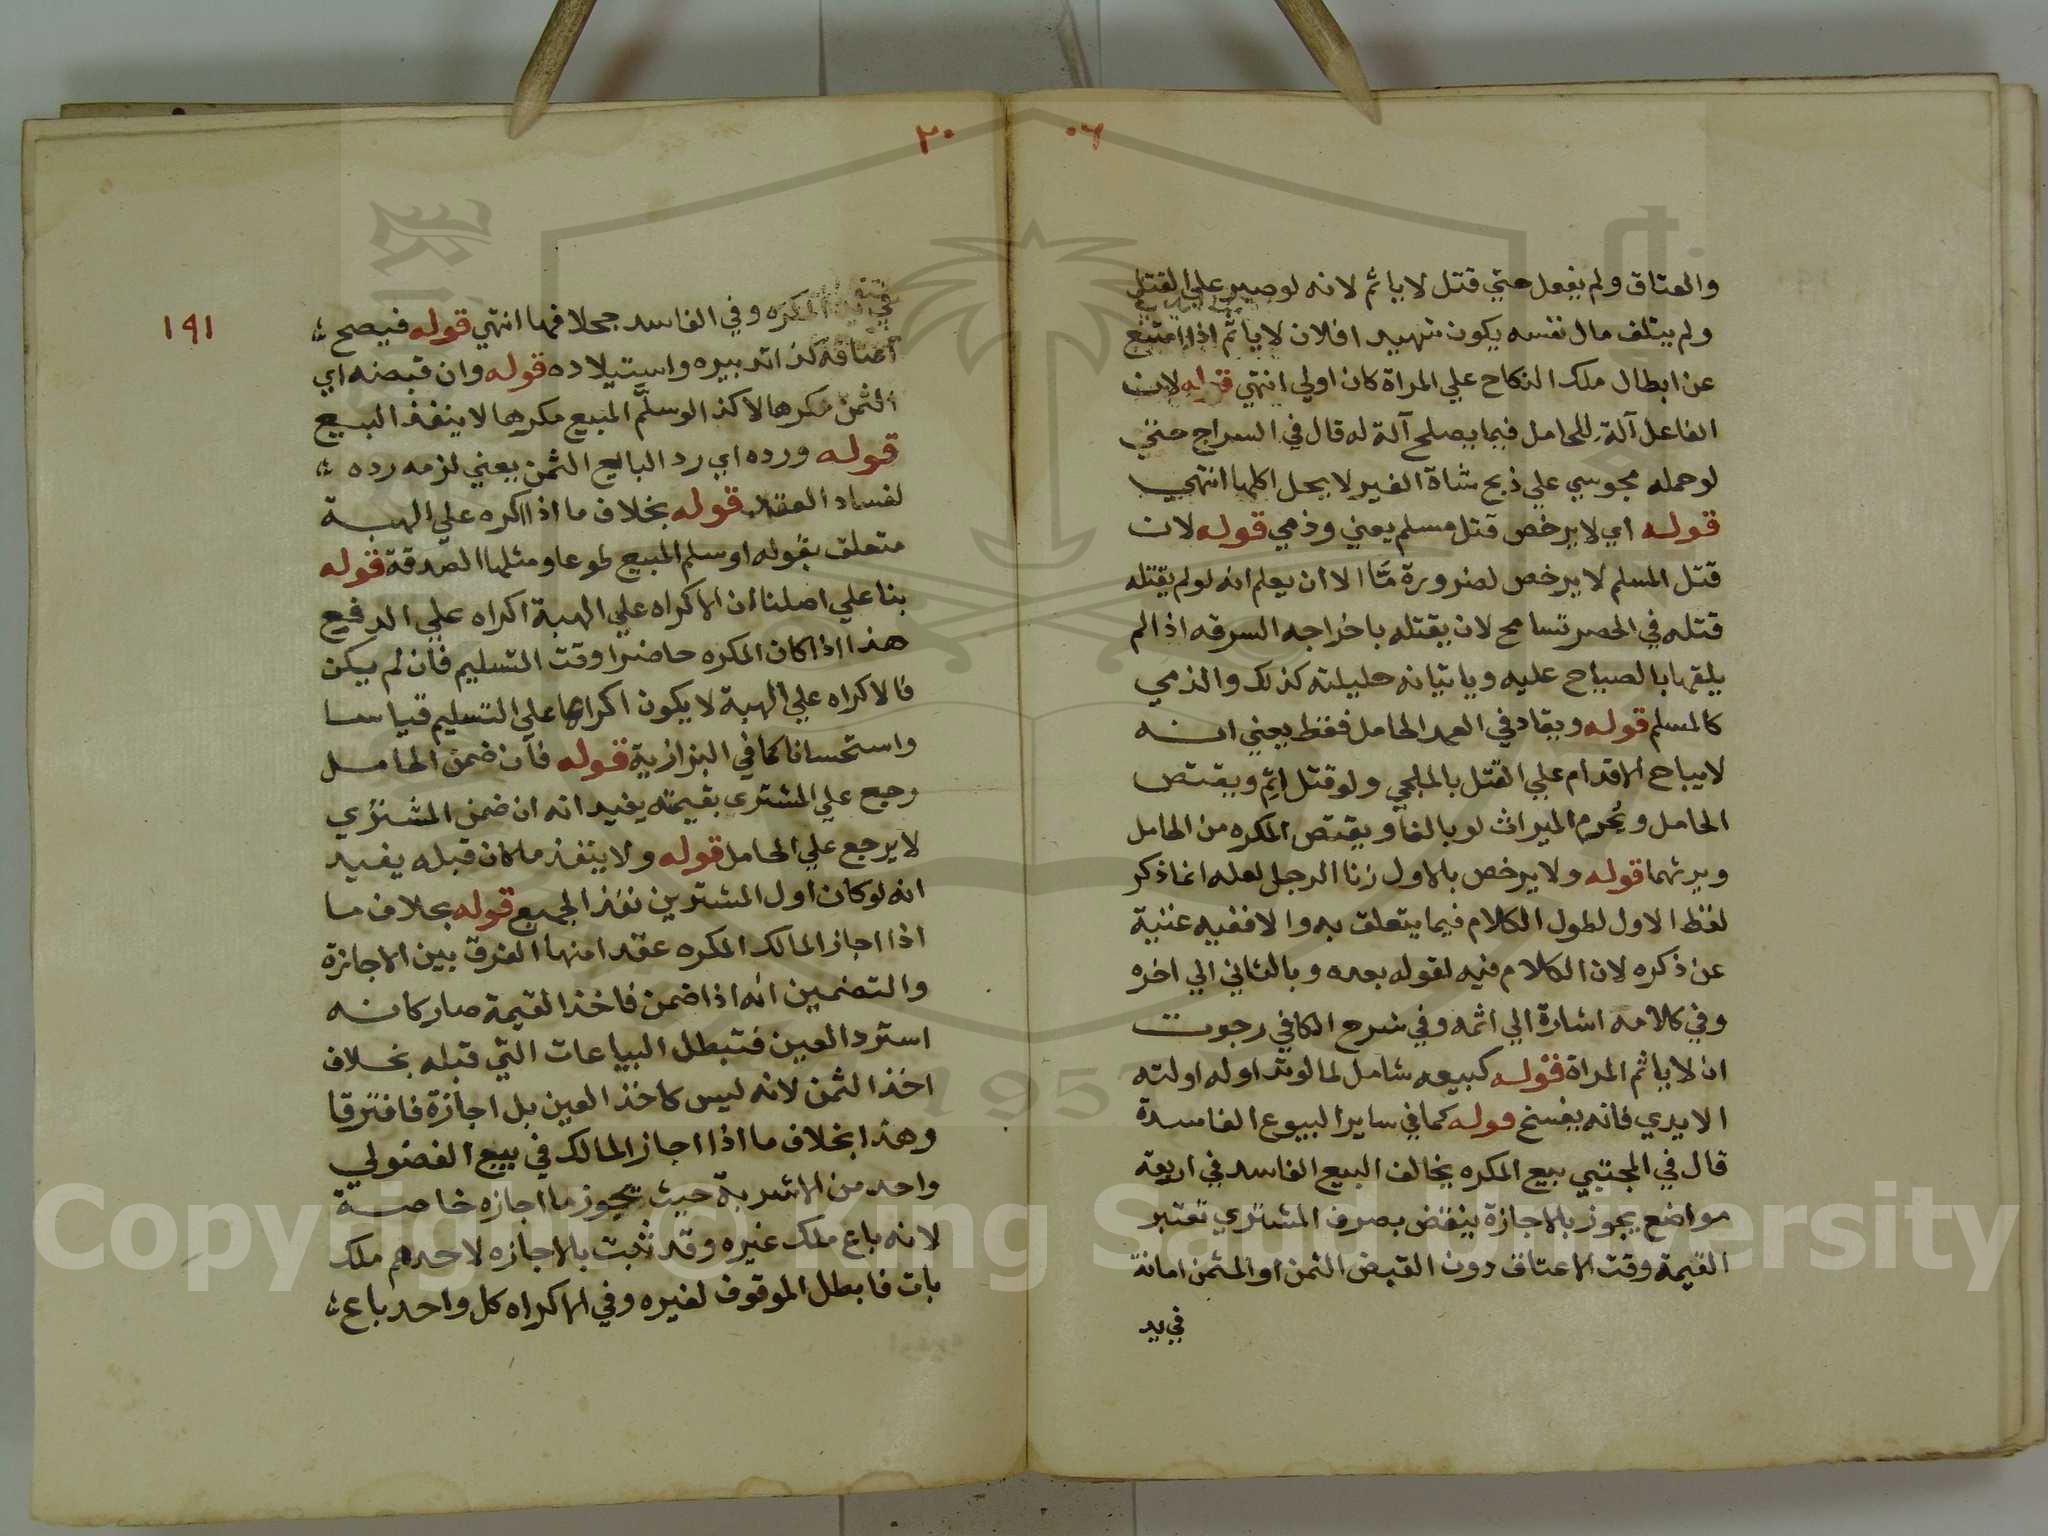 ٠٦
والعتاق ولم يفعل حتي قتل لا ياثم لانه لو صبر علي القتل
ولم يتلف مال نفسه يكون شهيدا فلان لا ياثم اذا امتنع
عن ابطال ملك النكاح علي المراة كان اولي انتهي قوله لان
الفاعل آلة للحامل فيما يصلح آلة له قال في السراج حتي
لو حمله مجوسي علي ذبح شاة الغير لا يحل اكلها انتهي
قوله اي لا يرخص قتل مسلم يعني وذمي قوله لان
قتل المسلم لا يرخص لضرورة مّا الا ان يعلم انه لو لم يقتله
قتله في الحصر تسامح لان يقتله باخراجه السرقه اذا لم
يلقها بالصياح عليه وياتيانه حليلته كذلك والذمي
كالمسلم قوله ويقاد في العمد الحامل فقط يعني انه
لا يباح الاقدام علي القتل بالملجي ولو قتل اثم ويقتص
الحامل ويُحرم الميراث لو بالغا ويقتص المكره من الحامل
ويرثهما قوله ولا يرخص بالاول زنا الرجل لعله انما ذكر
لفظ الاول لطول الكلام فيما يتعلق به والا ففيه غنية
عن ذكره لان الكلام فيه لقوله بعده وبالثاني الي اخره
وفي كلامه اشارة الي اثمه وفي شرح الكافي رجوت
ان لا ياثم المراة قوله كبيعه شامل لما لو تداوله اولته
الايدي فانه يفسخ قوله كما في ساير البيوع الفاسدة
قال في المجتبي بيع المكره يخالف البيع الفاسد في اربعة
مواضع يجوز بالاجازة ينقض بصرف المشتري تعتبر
القيمة وقت الاعتاق دون القبض الثمن او المثمن امانة
في يد
٢٠
١٩١
المكره وفي الفاسد جحلا فها انتهي قوله فيصح
اعتاقه كذا تدبيره واستيلاده قوله وان قبضه اي
الثمن مكرها لا كذا لو سلّم المبيع مكرها لا ينفذ البيع
قوله ورده اي رد البايع الثمن يعني لزمه رده
لفساد العقد قوله بخلاف ما اذا اكره علي الهبة
متعلق بقوله او سلم المبيع طوعا ومثلها الصدقة قوله
بنا علي اصلنا ان الاكراه علي الهبة اكراه علي الدفع
هذا اذا كان المكره حاضرا وقت التسليم فان لم يكن
فالاكراه علي الهبة لا يكون اكراها علي التسليم قياسا
واستحسانا كما في البزازية قوله فان ضمن الحامل
رجع علي المشتري بقيمته يفيد انه ان ضمن المشتري
لا يرجع علي الحامل قوله ولا ينفذ ما كان قبله يفيد
انه لو كان اول المشترين نفذ الجميع قوله بخلاف ما
اذا اجاز المالك المكره عقدا منها الفرق بين الاجازة
والتضمين انه اذا ضمن فاخذ القيمة صار كانه
استرد العين فتبطل البياعات التي قبله بخلاف
اخذ الثمن لانه ليس كاخذ العين بل اجازة فافترقا
وهذا بخلاف ما اذا اجاز المالك في بيع الفضولي
واحد من الاشربة حيث يجوز ما اجازه خاصة
لانه باع ملك غيره وقد ثبت بالاجازه لاحدهم ملك
بات فابطل الموقوف لغيره وفي الاكراه كل واحد باع
Copyright © King Saud University